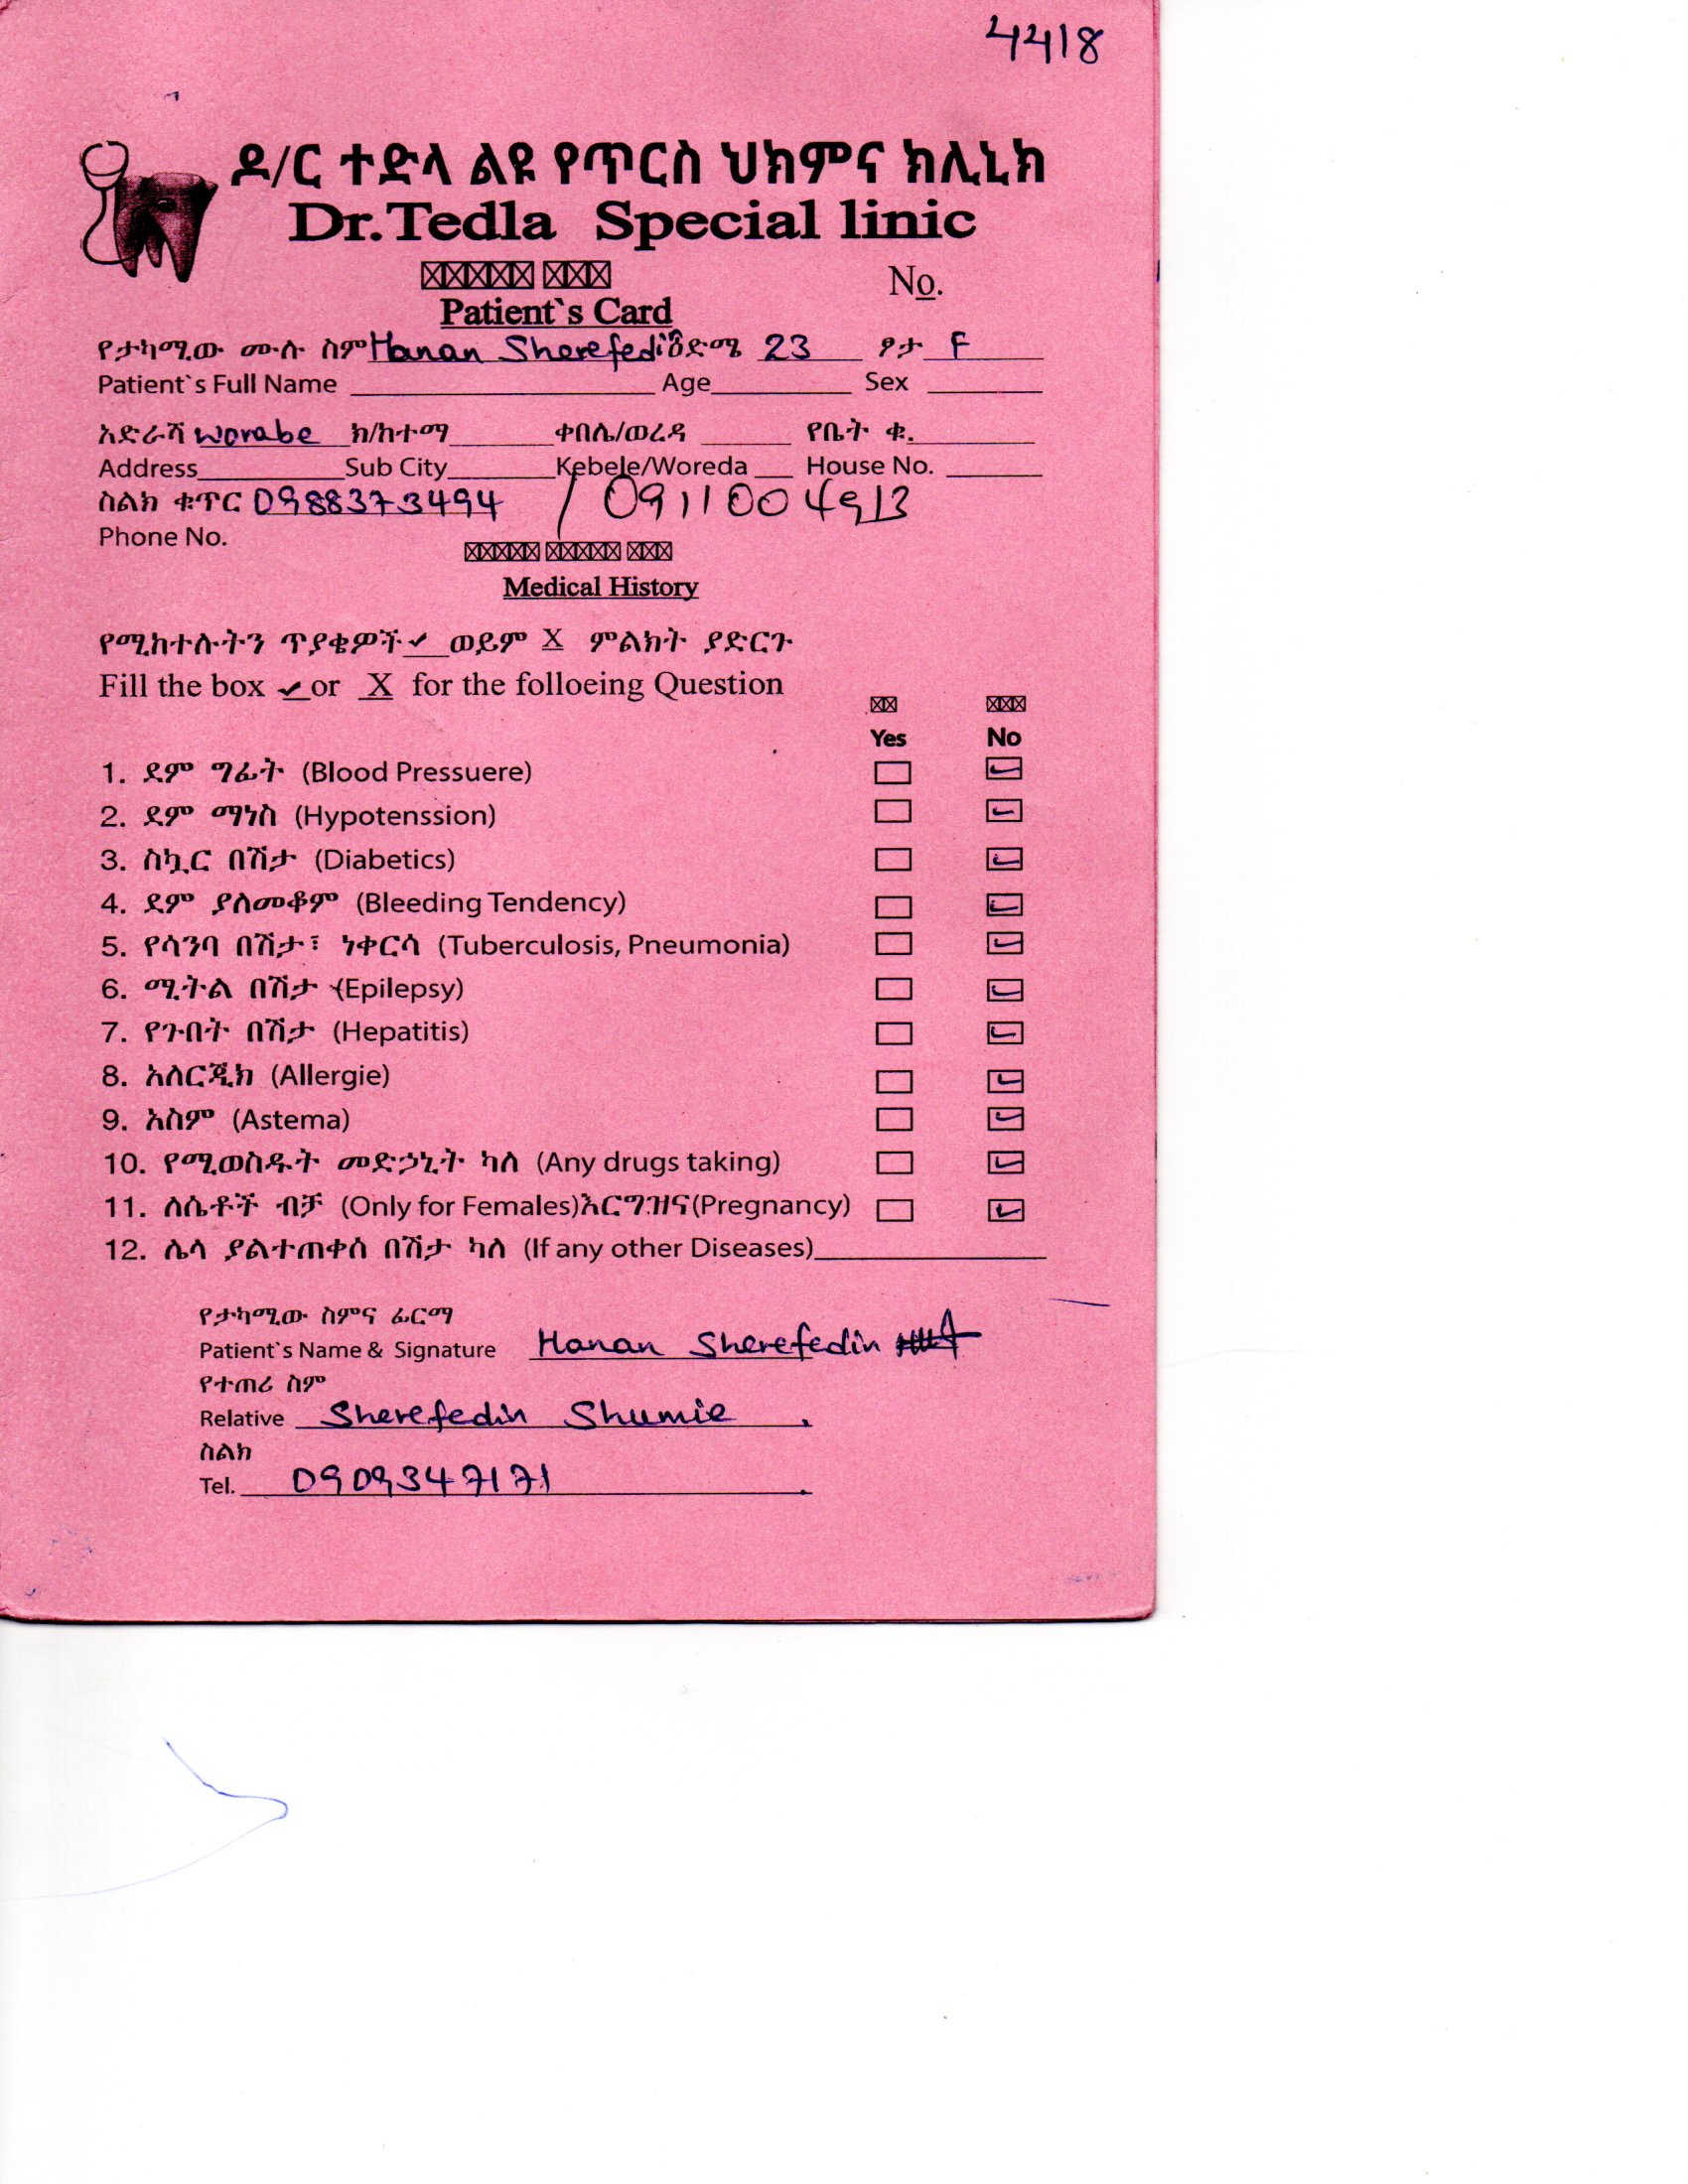 4418
ዶ/ር ተድላ ልዩ የጥርስ ህክምና ክሊኒክ
Dr.Tedla Special linic
No.
Patient`s Card
የታካሚው ሙሉ ስም Hanan Sherefedin ዕድሜ 23 ፆታ F
Patient`s Full Name Age Sex
አድራሻ worabe ክ/ከተማ ቀበሌ/ወረዳ የቤት ቁ.
Address Sub City Kebele/Woreda House No.
ስልክ ቁጥር 0988373494 / 0911004913
Phone No.
Medical History
የሚከተሉትን ጥያቄዎች ✓ ወይም X ምልክት ያድርጉ
Fill the box ✓ or X for the folloeing Question
Yes No
1. ደም ግፊት (Blood Pressuere) ✓
2. ደም ማነስ (Hypotenssion) ✓
3. ስኳር በሽታ (Diabetics) ✓
4. ደም ያለመቆም (Bleeding Tendency) ✓
5. የሳንባ በሽታ፣ ነቀርሳ (Tuberculosis, Pneumonia) ✓
6. ሚትል በሽታ (Epilepsy) ✓
7. የጉበት በሽታ (Hepatitis) ✓
8. አለርጂክ (Allergie) ✓
9. አስም (Astema) ✓
10. የሚወስዱት መድኃኒት ካለ (Any drugs taking) ✓
11. ለሴቶች ብቻ (Only for Females)እርግዝና(Pregnancy) ✓
12. ሌላ ያልተጠቀሰ በሽታ ካለ (If any other Diseases)
የታካሚው ስምና ፊርማ
Patient`s Name & Signature Hanan Sherefedin
የተጠሪ ስም
Relative Sherefedin Shumie
ስልክ
Tel. 0909347171